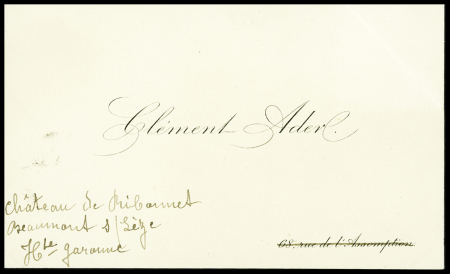 Clément Ader.
château de Ribonnet
Beaumont s/Lèze
Hte garonne
68, rue de l'Assomption